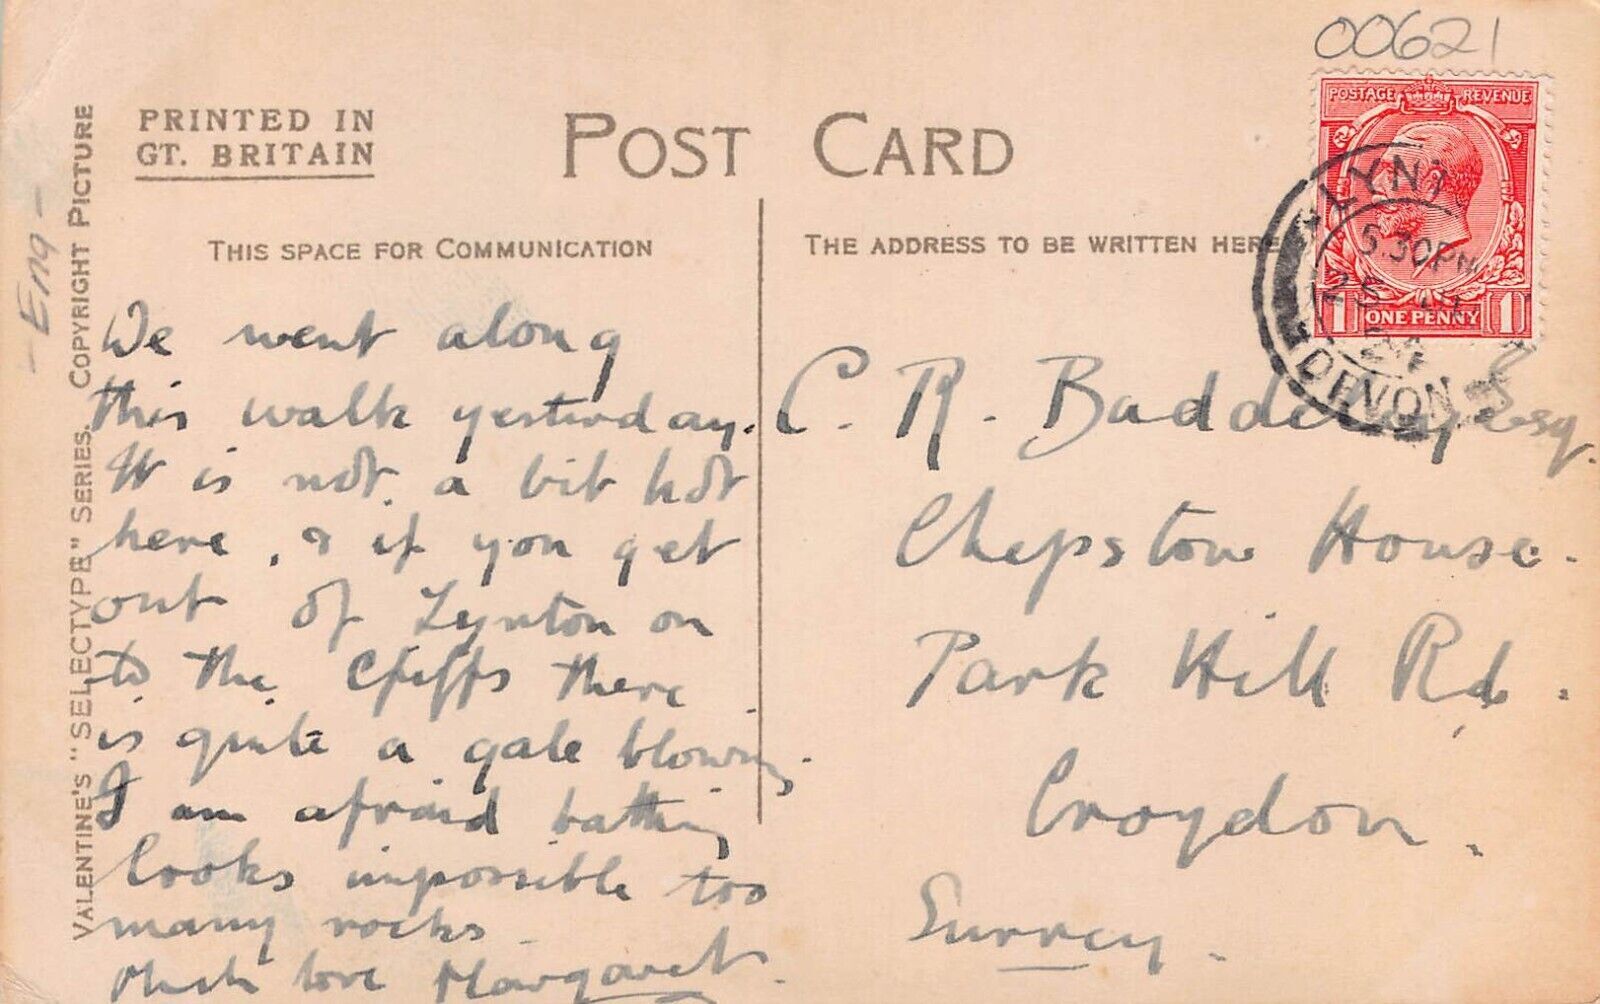 00621
POSTAGE REVENUE
1 ONE PENNY 1
LYNT
5.30PM
DEVON
PRINTED IN
GT. BRITAIN
POST CARD
THIS SPACE FOR COMMUNICATION
THE ADDRESS TO BE WRITTEN HERE
- Eng -
VALENTINE'S "SELECTYPE" SERIES. COPYRIGHT PICTURE
We went along
this walk yesterday.
It is not a bit hot
here, & if you get
out of Lynton on
to the Cliffs there
is quite a gale blowing.
I am afraid bathing
looks impossible too
many rocks.
Much love Margaret.
C. R. Baddeley Esq.
Chepstow House.
Park Hill Rd.
Croydon.
Surrey.